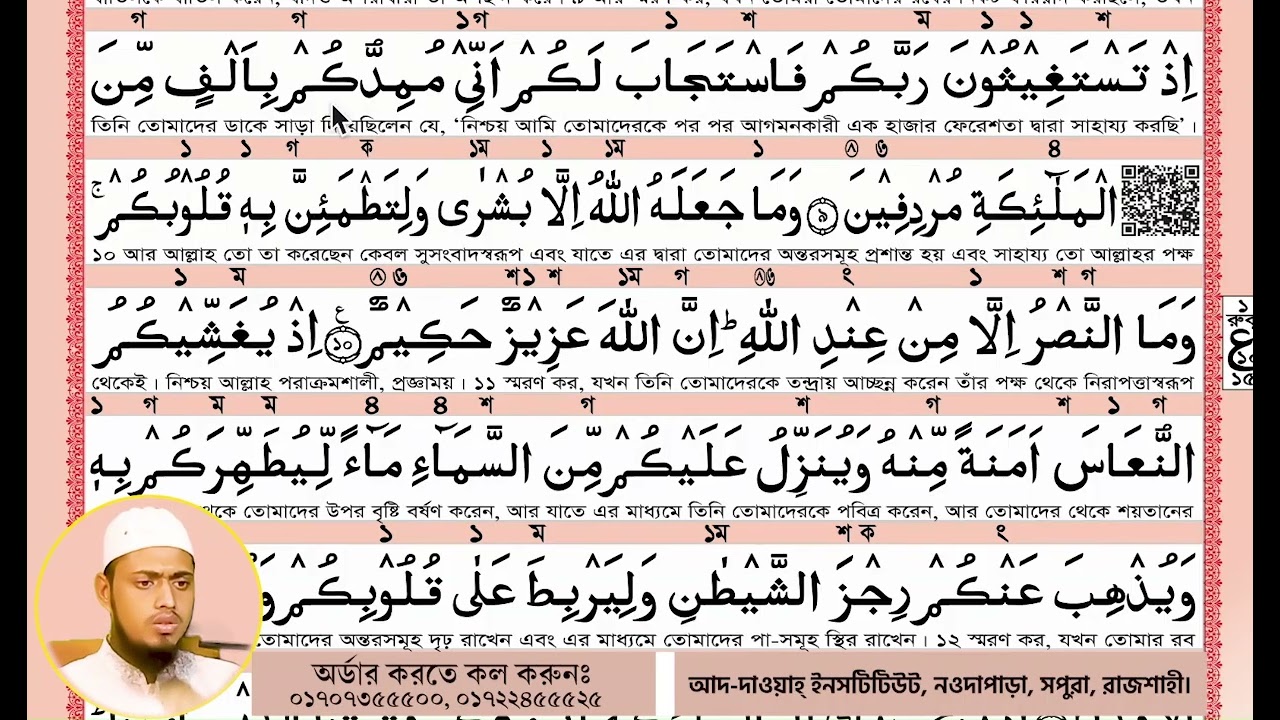 গ গ ১গ ১ শ ম ১ ১ শ
اِذْ تَسْتَغِيْثُوْنَ رَبَّكُمْ فَاسْتَجَابَ لَكُمْ اَنِّيْ مُمِدُّكُمْ بِاَلْفٍ مِّنَ
তিনি তোমাদের ডাকে সাড়া দিয়েছিলেন যে, ‘নিশ্চয় আমি তোমাদেরকে পর পর আগমনকারী এক হাজার ফেরেশতা দ্বারা সাহায্য করছি’।
১ ১ গ ক ১ম ১ ১ম ১ ৬ ৪
الْمَلٰٓئِكَةِ مُرْدِفِيْنَ ۝৯ وَمَا جَعَلَهُ اللّٰهُ اِلَّا بُشْرٰى وَلِتَطْمَئِنَّ بِهٖ قُلُوْبُكُمْ ۚ
১০ আর আল্লাহ তো তা করেছেন কেবল সুসংবাদস্বরূপ এবং যাতে এর দ্বারা তোমাদের অন্তরসমূহ প্রশান্ত হয় এবং সাহায্য তো আল্লাহর পক্ষ
১ ম ৬ শ১ শ ১ম গ ৬ ং ১ শ গ
وَمَا النَّصْرُ اِلَّا مِنْ عِنْدِ اللّٰهِ ؕ اِنَّ اللّٰهَ عَزِيْزٌ حَكِيْمٌ ۝১০ اِذْ يُغَشِّيْكُمُ
থেকেই। নিশ্চয় আল্লাহ পরাক্রমশালী, প্রজ্ঞাময়। ১১ স্মরণ কর, যখন তিনি তোমাদেরকে তন্দ্রায় আচ্ছন্ন করেন তাঁর পক্ষ থেকে নিরাপত্তাস্বরূপ
১ গ ম ম ৪ ৪ শ গ শ গ শ ১ গ
النُّعَاسَ اَمَنَةً مِّنْهُ وَيُنَزِّلُ عَلَيْكُمْ مِّنَ السَّمَآءِ مَآءً لِّيُطَهِّرَكُمْ بِهٖ
থেকে তোমাদের উপর বৃষ্টি বর্ষণ করেন, আর যাতে এর মাধ্যমে তিনি তোমাদেরকে পবিত্র করেন, আর তোমাদের থেকে শয়তানের
১ ১ ম ১ম শ ক ং
وَيُذْهِبَ عَنْكُمْ رِجْزَ الشَّيْطٰنِ وَلِيَرْبِطَ عَلٰى قُلُوْبِكُمْ وَ
তোমাদের অন্তরসমূহ দৃঢ় রাখেন এবং এর মাধ্যমে তোমাদের পা-সমূহ স্থির রাখেন। ১২ স্মরণ কর, যখন তোমার রব
অর্ডার করতে কল করুনঃ
০১৭০৭৩৫৫৫০০, ০১৭২২৪৫৫৫২৫
আদ-দাওয়াহ্ ইনসটিটিউট, নওদাপাড়া, সপুরা, রাজশাহী।